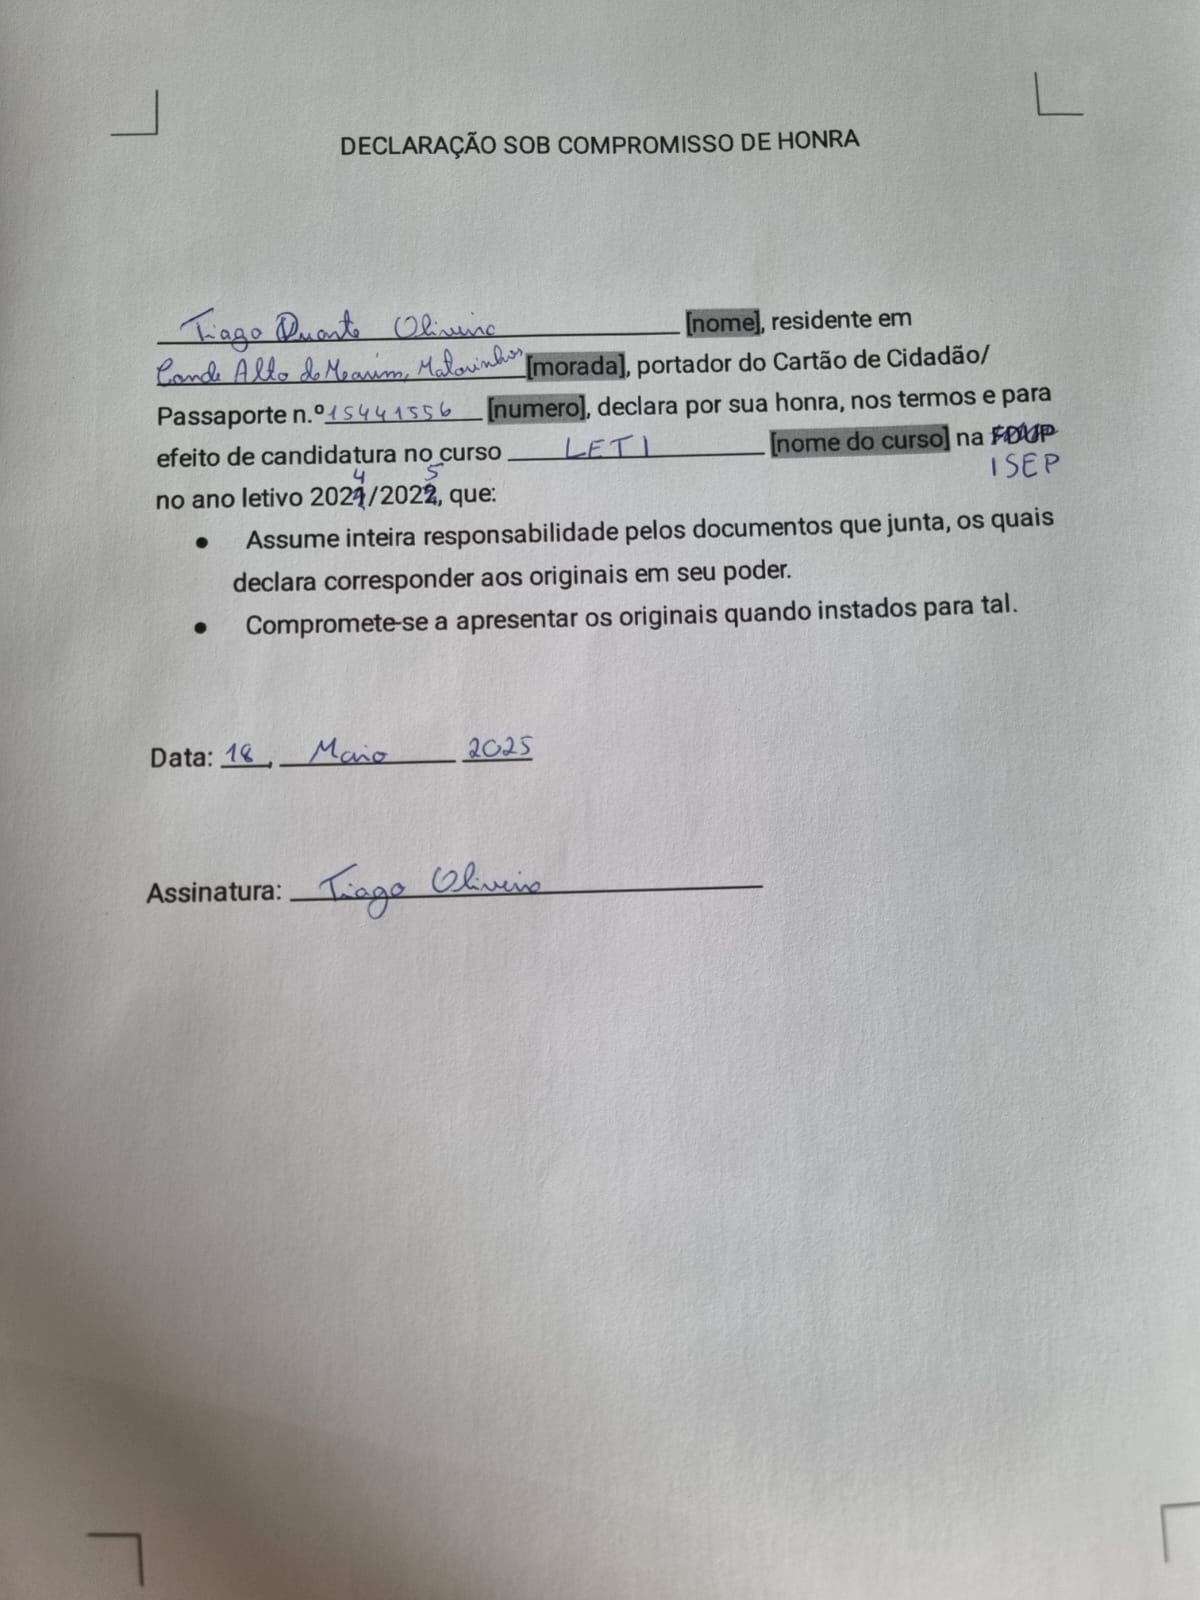 DECLARAÇÃO SOB COMPROMISSO DE HONRA
Tiago Duarte Oliveira [nome], residente em
Conde Alto de Mearim, Matosinhos [morada], portador do Cartão de Cidadão/
Passaporte n.º 15441556 [numero], declara por sua honra, nos termos e para
efeito de candidatura no curso LETI [nome do curso] na FDUP
ISEP
4 5
no ano letivo 2021/2022, que:
● Assume inteira responsabilidade pelos documentos que junta, os quais
declara corresponder aos originais em seu poder.
● Compromete-se a apresentar os originais quando instados para tal.
Data: 18, Maio 2025
Assinatura: Tiago Oliveira